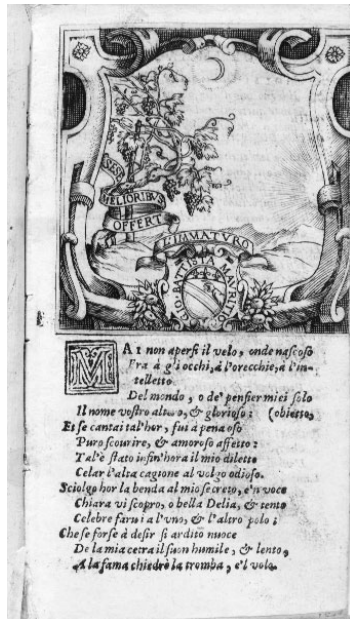 SESE
MELIORIBVS
OFFERT
L'IMMATVRO
GIO. BATTISTA MAVRITIO
MAI non apersi il velo, onde nascoso
Fra à gli occhi, à l'orecchie, à l'in-
telletto
Del mondo, o de' pensier miei solo
Il nome vostro altero, & glorioso: (obietto,
Et se cantai tal'hor, fui à pena oso
Puro scourire, & amoroso affetto:
Tal'è stato insin'hora il mio diletto
Celar l'alta cagione al volgo odioso.
Sciolgo hor la benda al mio secreto, e'n voce
Chiara vi scopro, o bella Delia, & tento
Celebre farui a l'vno, & l'altro polo;
Che se forse à desir si ardito nuoce
De la mia cetra il suon humile, & lento,
A la fama chiedrò la tromba, e'l volo.